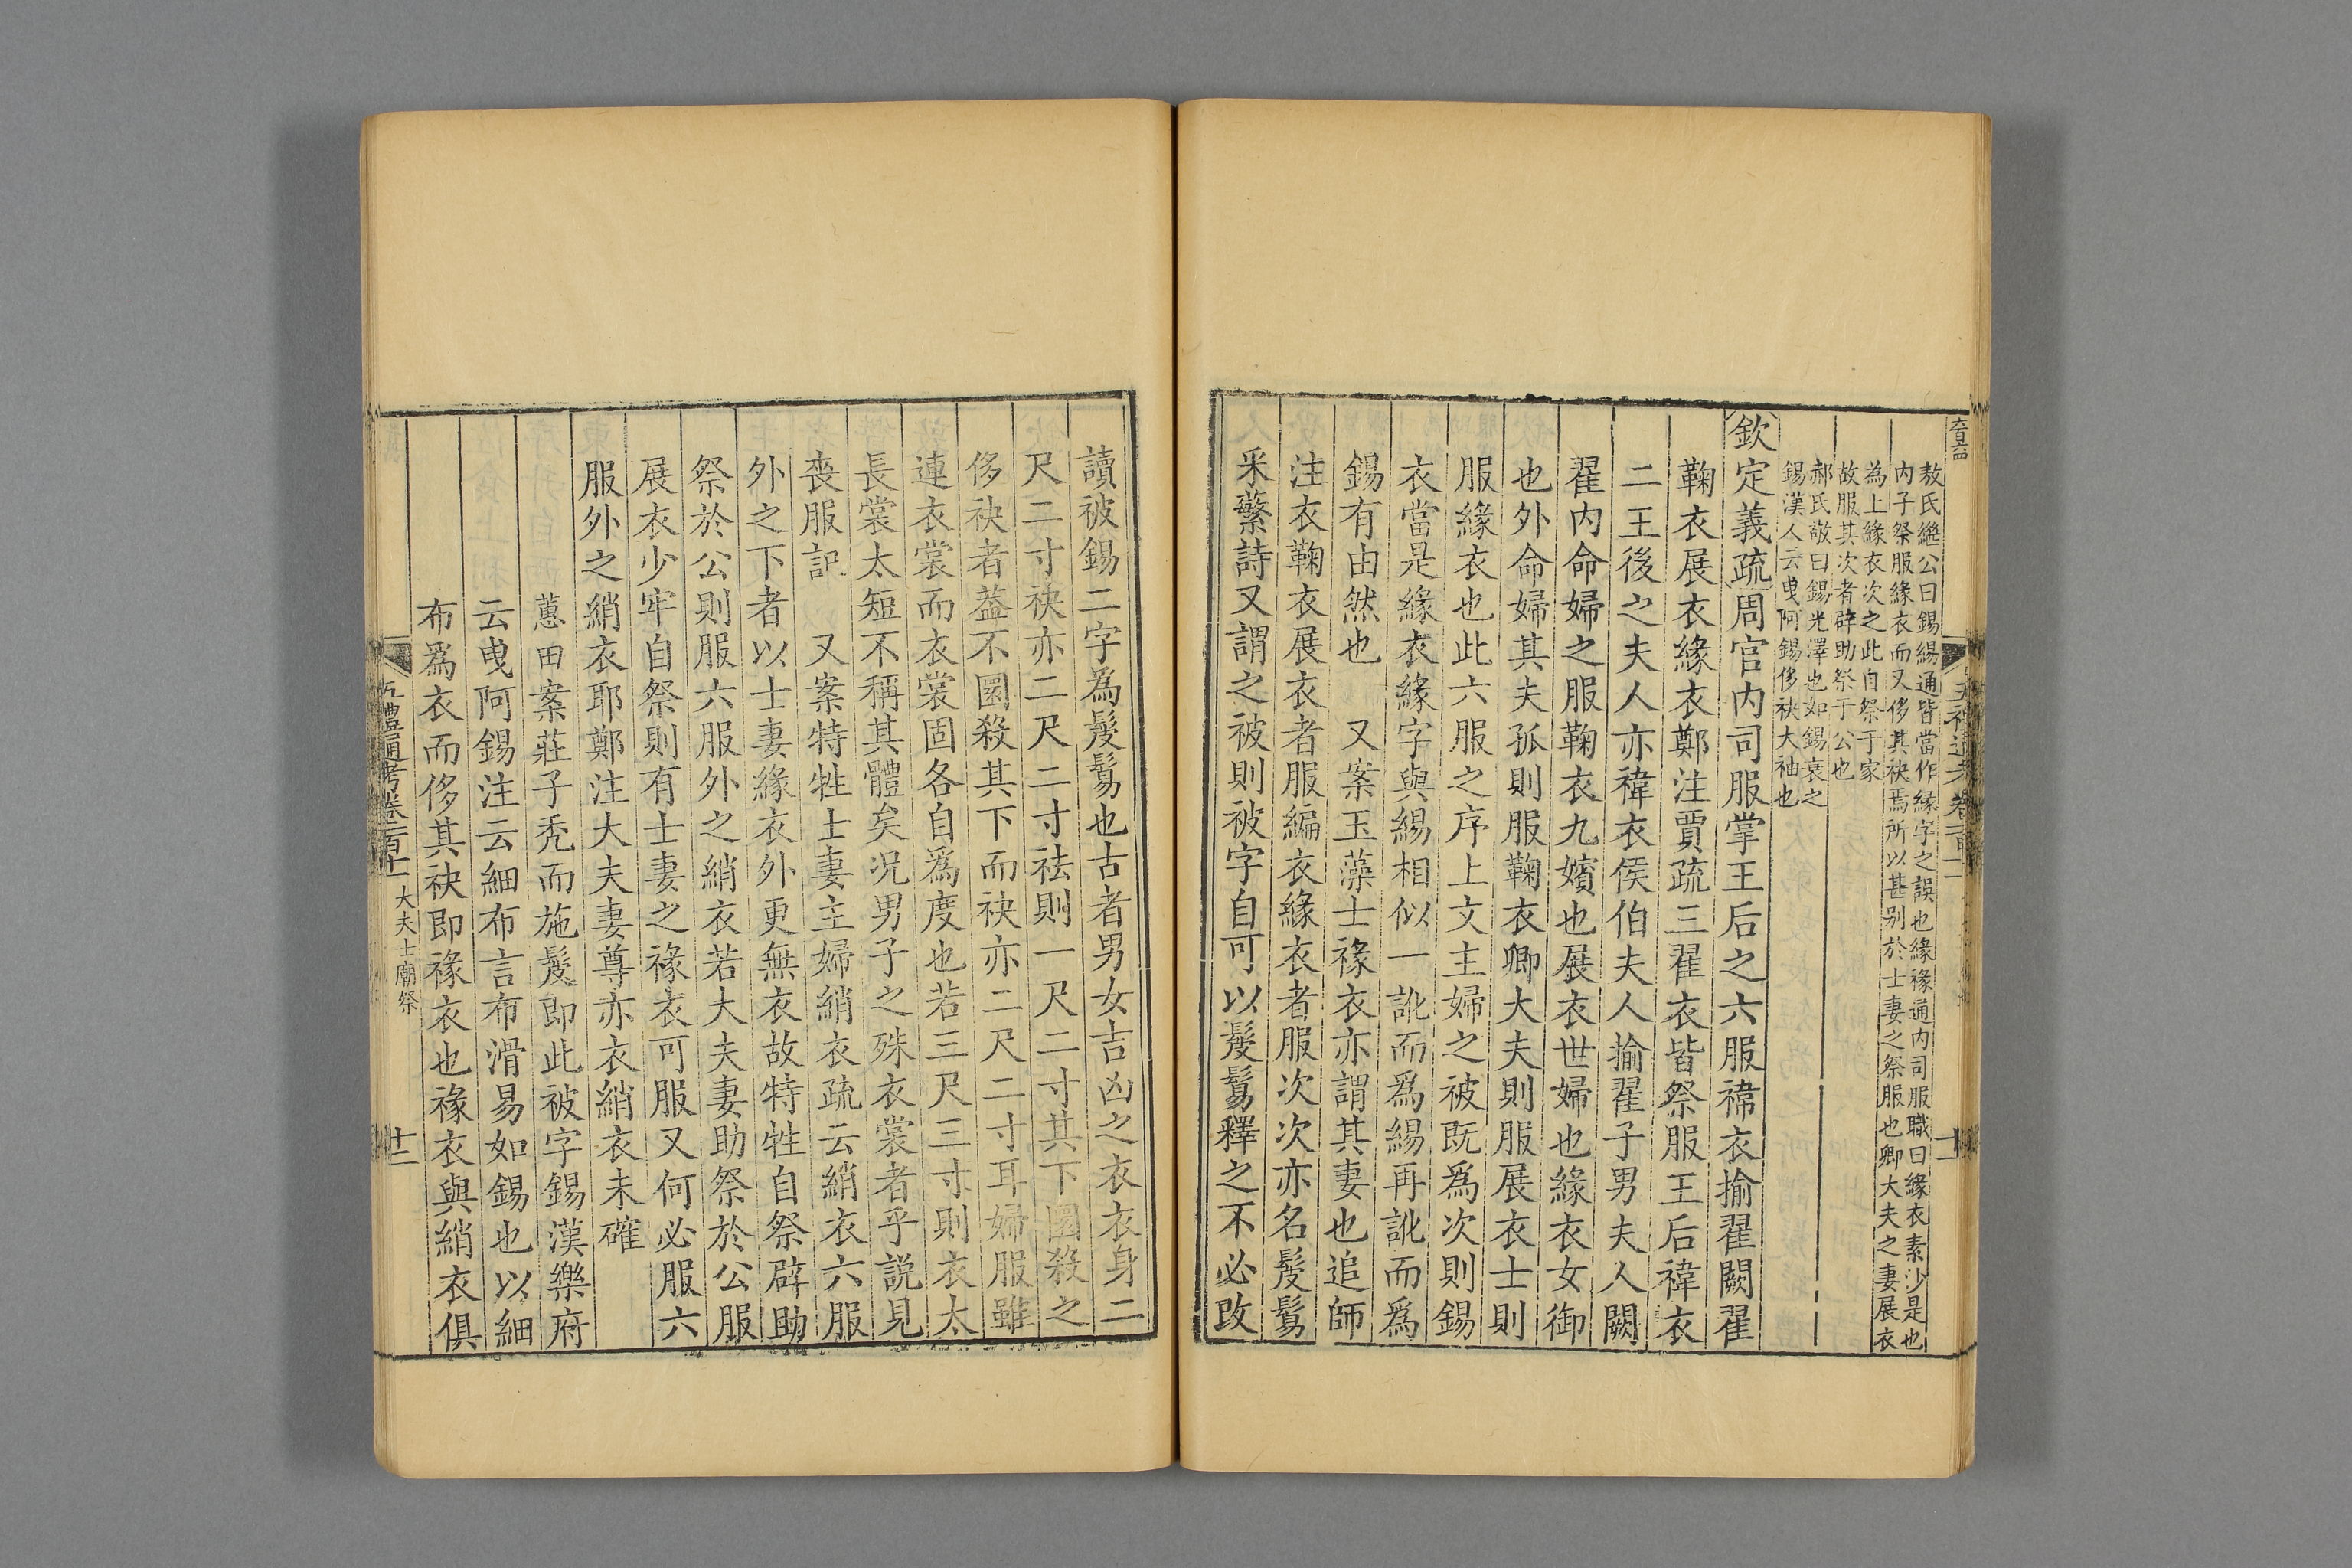 敖氏繼公曰錫緆通皆當作緣字之誤也緣褖通内司服職曰緣衣素沙是也
内子祭服緣衣而又侈其袂焉所以甚别於士妻之祭服也卿大夫之妻展衣
為上緣衣次之此自祭于家
故服其次者辟助祭于公也
郝氏敬曰錫光澤也如錫衰之
錫漢人云曳阿錫侈袂大袖也
欽定義疏周官内司服掌王后之六服褘衣揄翟闕翟
鞠衣展衣緣衣鄭注賈疏三翟衣皆祭服王后褘衣
二王後之夫人亦褘衣侯伯夫人揄翟子男夫人闕
翟内命婦之服鞠衣九嬪也展衣世婦也緣衣女御
也外命婦其夫孤則服鞠衣卿大夫則服展衣士則
服緣衣也此六服之序上文主婦之被既爲次則錫
衣當是緣衣緣字與緆相似一訛而爲緆再訛而爲
錫有由然也　又案玉藻士褖衣亦謂其妻也追師
注衣鞠衣展衣者服編衣緣衣者服次次亦名髲鬄
采蘩詩又謂之被則被字自可以髲鬄釋之不必改
讀被錫二字為髲鬄也古者男女吉凶之衣衣身二
尺二寸袂亦二尺二寸袪則一尺二寸其下圜殺之
侈袂者葢不圜殺其下而袂亦二尺二寸耳婦服雖
連衣裳而衣裳固各自爲度也若三尺三寸則衣太
長裳太短不稱其體矣况男子之殊衣裳者乎説見
喪服記　又案特牲士妻主婦綃衣疏云綃衣六服
外之下者以士妻緣衣外更無衣故特牲自祭辟助
祭於公則服六服外之綃衣若大夫妻助祭於公服
展衣少牢自祭則有士妻之褖衣可服又何必服六
服外之綃衣耶鄭注大夫妻尊亦衣綃衣未確
蕙田案莊子秃而施髲即此被字錫漢樂府
云曳阿錫注云細布言布滑易如錫也以細
布爲衣而侈其袂即褖衣也褖衣與綃衣俱
五禮通考卷一百十一　大夫士廟祭
十二